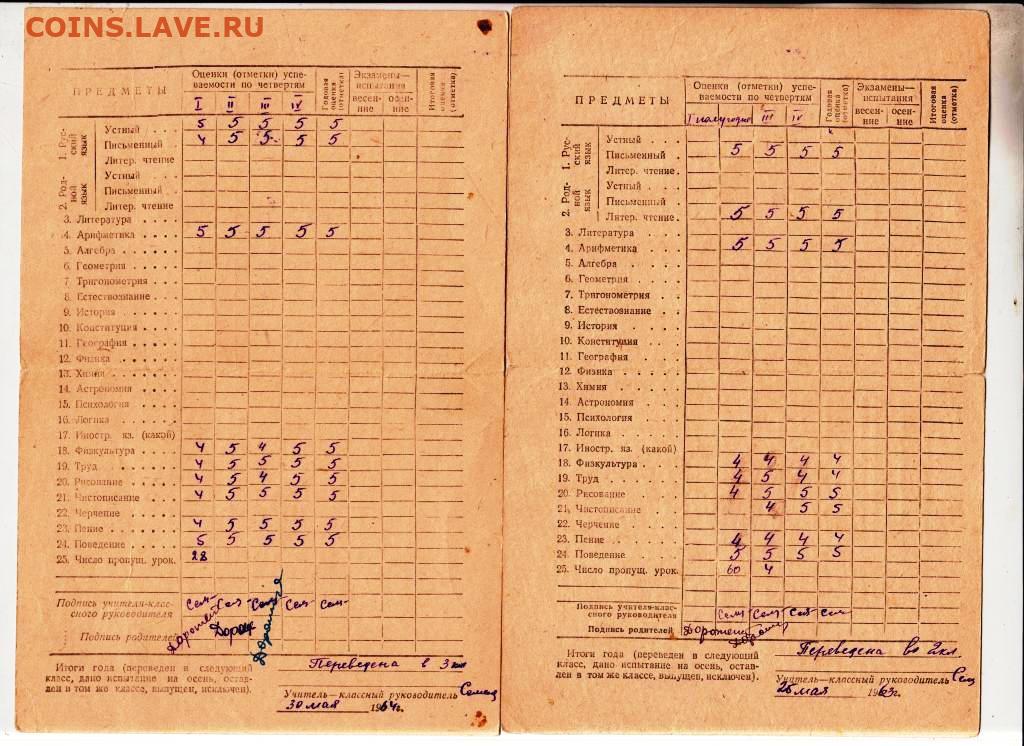 COINS.LAVE.RU
ПРЕДМЕТЫ
Оценки (отметки) успе-
ваемости по четвертям
I II III IV
Годовая оценка (отметка)
Экзамены—
испытания
весен-
ние
осен-
ние
Итоговая оценка (отметка)
1. Рус-
ский
язык
Устный 5 5 5 5 5
Письменный 4 5 5 5 5
Литер. чтение
2. Род-
ной
язык
Устный
Письменный
Литер. чтение
3. Литература
4. Арифметика 5 5 5 5 5
5. Алгебра
6. Геометрия
7. Тригонометрия
8. Естествознание
9. История
10. Конституция
11. География
12. Физика
13. Химия
14. Астрономия
15. Психология
16. Логика
17. Иностр. яз. (какой)
18. Физкультура 4 5 4 5 5
19. Труд 4 5 5 5 5
20. Рисование 4 5 4 5 5
21. Чистописание 4 5 5 5 5
22. Черчение
23. Пение 4 5 5 5 5
24. Поведение 5 5 5 5 5
25. Число пропущ. урок. 28
Подпись учителя-клас-
сного руководителя
Подпись родителей
Итоги года (переведен в следующий
класс, дано испытание на осень, остав-
лен в том же классе, выпущен, исключен).
Переведена в 3 кл
Учитель—классный руководитель
30 мая 1964г.
ПРЕДМЕТЫ
Оценки (отметки) успе-
ваемости по четвертям
I полугодие III IV
Годовая оценка (отметка)
Экзамены—
испытания
весен-
ние
осен-
ние
Итоговая оценка (отметка)
1. Рус-
ский
язык
Устный
Письменный 5 5 5 5
Литер. чтение
2. Род-
ной
язык
Устный
Письменный
Литер. чтение 5 5 5 5
3. Литература
4. Арифметика 5 5 5 5
5. Алгебра
6. Геометрия
7. Тригонометрия
8. Естествознание
9. История
10. Конституция
11. География
12. Физика
13. Химия
14. Астрономия
15. Психология
16. Логика
17. Иностр. яз. (какой)
18. Физкультура 4 4 4 4
19. Труд 4 5 4 4
20. Рисование 4 5 5 5
21. Чистописание 4 5 5
22. Черчение
23. Пение 4 4 4 4
24. Поведение 5 5 5 5
25. Число пропущ. урок. 60 4
Подпись учителя-клас-
сного руководителя
Подпись родителей
Итоги года (переведен в следующий
класс, дано испытание на осень, остав-
лен в том же классе, выпущен, исключен).
Переведена во 2 кл.
Учитель—классный руководитель
25 мая 1963г.